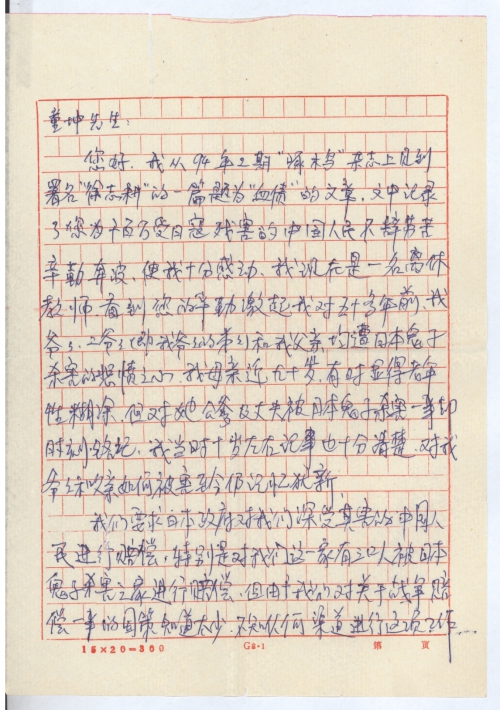 童坤先生:
您好. 我从94年2期"啄木鸟"杂志上见到
署名"徐志耕"的一篇题为"血债"的文章, 文中记录
了您为千百万受日寇残害的中国人民不辞劳苦
辛勤奔波, 使我十分感动. 我现在是一名离休
教师看到您的辛勤激起我对五十多年前, 我
爷爷、二爷(即我爷爷的弟弟)和我父亲均遭日本鬼子
杀害的怒愤之心. 我母亲近九十岁, 有时显得老年
性糊涂, 但对她公爹及丈夫被日本鬼子杀害一事却
时刻铭记, 我当时十岁左右记事也十分清楚, 对我
爷爷和父亲如何被害至今仍记忆犹新.
我们要求日本政府对我们深受其害的中国人
民进行赔偿, 特别是对我们这一家有三口人被日本
鬼子杀害之家进行赔偿, 但由于我们对关于战争赔
偿一事的国策知道太少, 不知从何渠道进行这项工作
15×20=300 G8·1 第 页